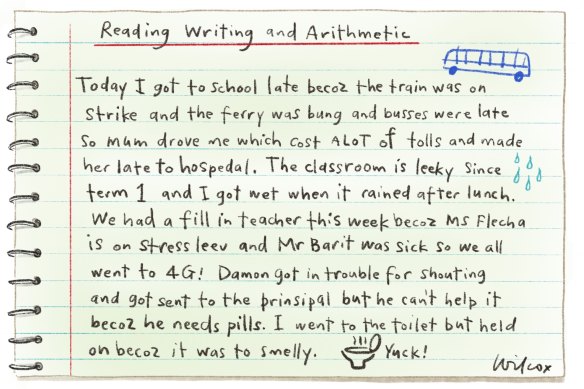 Reading Writing and Arithmetic
Today I got to school late becoz the train was on
strike and the ferry was bung and busses were late
so mum drove me which cost ALOT of tolls and made
her late to hospedal. The classroom is leeky since
term 1 and I got wet when it rained after lunch.
We had a fill in teacher this week becoz Ms Flecha
is on stress leev and Mr Barit was sick so we all
went to 4G! Damon got in trouble for shouting
and got sent to the prinsipal but he can't help it
becoz he needs pills. I went to the toilet but held
on becoz it was to smelly. Yuck!
Wilcox